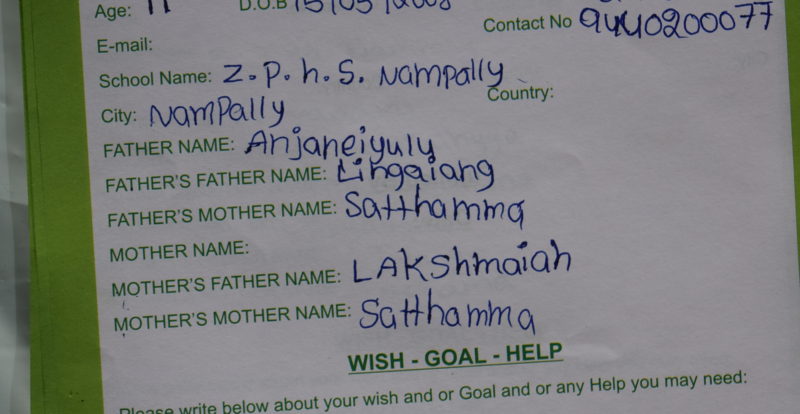 Age: 11 D.O.B 15/05/2008
Contact No 9440200077
E-mail:
School Name: Z.P.h.S. Nampally
Country:
City: Nampally
FATHER NAME: Anjaneiyuly
FATHER'S FATHER NAME: Lingaiang
FATHER'S MOTHER NAME: Satthamma
MOTHER NAME:
MOTHER'S FATHER NAME: LAKShmaiah
MOTHER'S MOTHER NAME: Satthamma
WISH - GOAL - HELP
Please write below about your wish and or Goal and or any Help you may need: